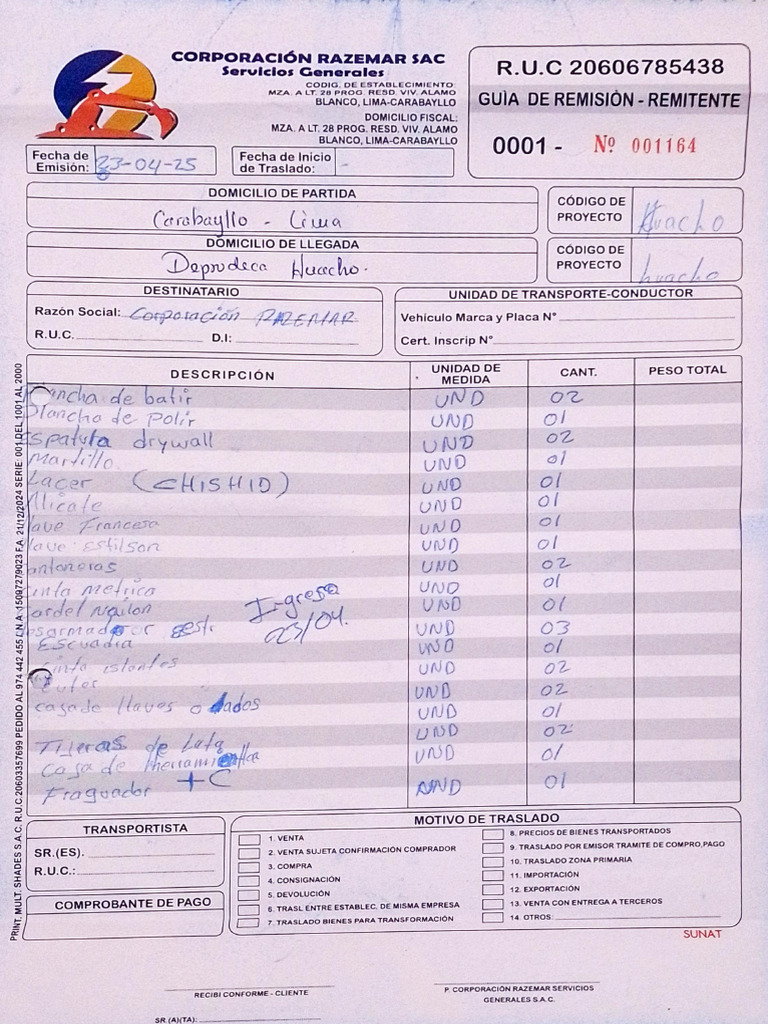 CORPORACIÓN RAZEMAR SAC
Servicios Generales
CODIG. DE ESTABLECIMIENTO:
MZA. A LT. 28 PROG. RESD. VIV. ALAMO
BLANCO, LIMA-CARABAYLLO
DOMICILIO FISCAL:
MZA. A LT. 28 PROG. RESD. VIV. ALAMO
BLANCO, LIMA-CARABAYLLO
R.U.C 20606785438
GUÌA DE REMISIÒN - REMITENTE
0001 - Nº 001164
Fecha de Emisión: 23-04-25
Fecha de Inicio de Traslado: -
DOMICILIO DE PARTIDA
Carabayllo - Lima
CÓDIGO DE PROYECTO Huacho
DOMICILIO DE LLEGADA
Deprodeca Huacho.
CÓDIGO DE PROYECTO huacho
DESTINATARIO
Razón Social: Corporación RAZEMAR
R.U.C. D.I:
UNIDAD DE TRANSPORTE-CONDUCTOR
Vehículo Marca y Placa N°
Cert. Inscrip N°
DESCRIPCIÓN UNIDAD DE MEDIDA CANT. PESO TOTAL
ncha de batir UND 02
Plancha de polir UND 01
Espatula drywall UND 02
Martillo UND 01
(CHISHID) UND 01
Alicate UND 01
lave Francesa UND 01
lave Estilson UND 01
antoneras UND 02
inta metrica UND 01
ordel Nquilon UND 01
Ingreso
23/04.
UND 03
Escuadra UND 01
inta UND 02
uter UND 02
caja de llaves o dados UND 01
Tijeras de lata UND 02
Caja de herramientta UND 01
Fraguador + C UND 01
TRANSPORTISTA
SR.(ES).
R.U.C.:
COMPROBANTE DE PAGO
MOTIVO DE TRASLADO
1. VENTA
2. VENTA SUJETA CONFIRMACIÓN COMPRADOR
3. COMPRA
4. CONSIGNACIÓN
5. DEVOLUCIÓN
6. TRASL ENTRE ESTABLEC. DE MISMA EMPRESA
7. TRASLADO BIENES PARA TRANSFORMACIÓN
8. PRECIOS DE BIENES TRANSPORTADOS
9. TRASLADO POR EMISOR TRAMITE DE COMPRO,PAGO
10. TRASLADO ZONA PRIMARIA
11. IMPORTACIÓN
12. EXPORTACIÓN
13. VENTA CON ENTREGA A TERCEROS
14 OTROS:
SUNAT
PRINT. MULT. SHADES S.A.C. R.U.C.20603357699 PEDIDO AL 974 442 455 / N.A 15097279023 F.A. 21/12/2024 SERIE: 001 DEL 1001 AL 2000
RECIBI CONFORME - CLIENTE
SR.(A)(TA):
P. CORPORACIÓN RAZEMAR SERVICIOS
GENERALES S.A.C.